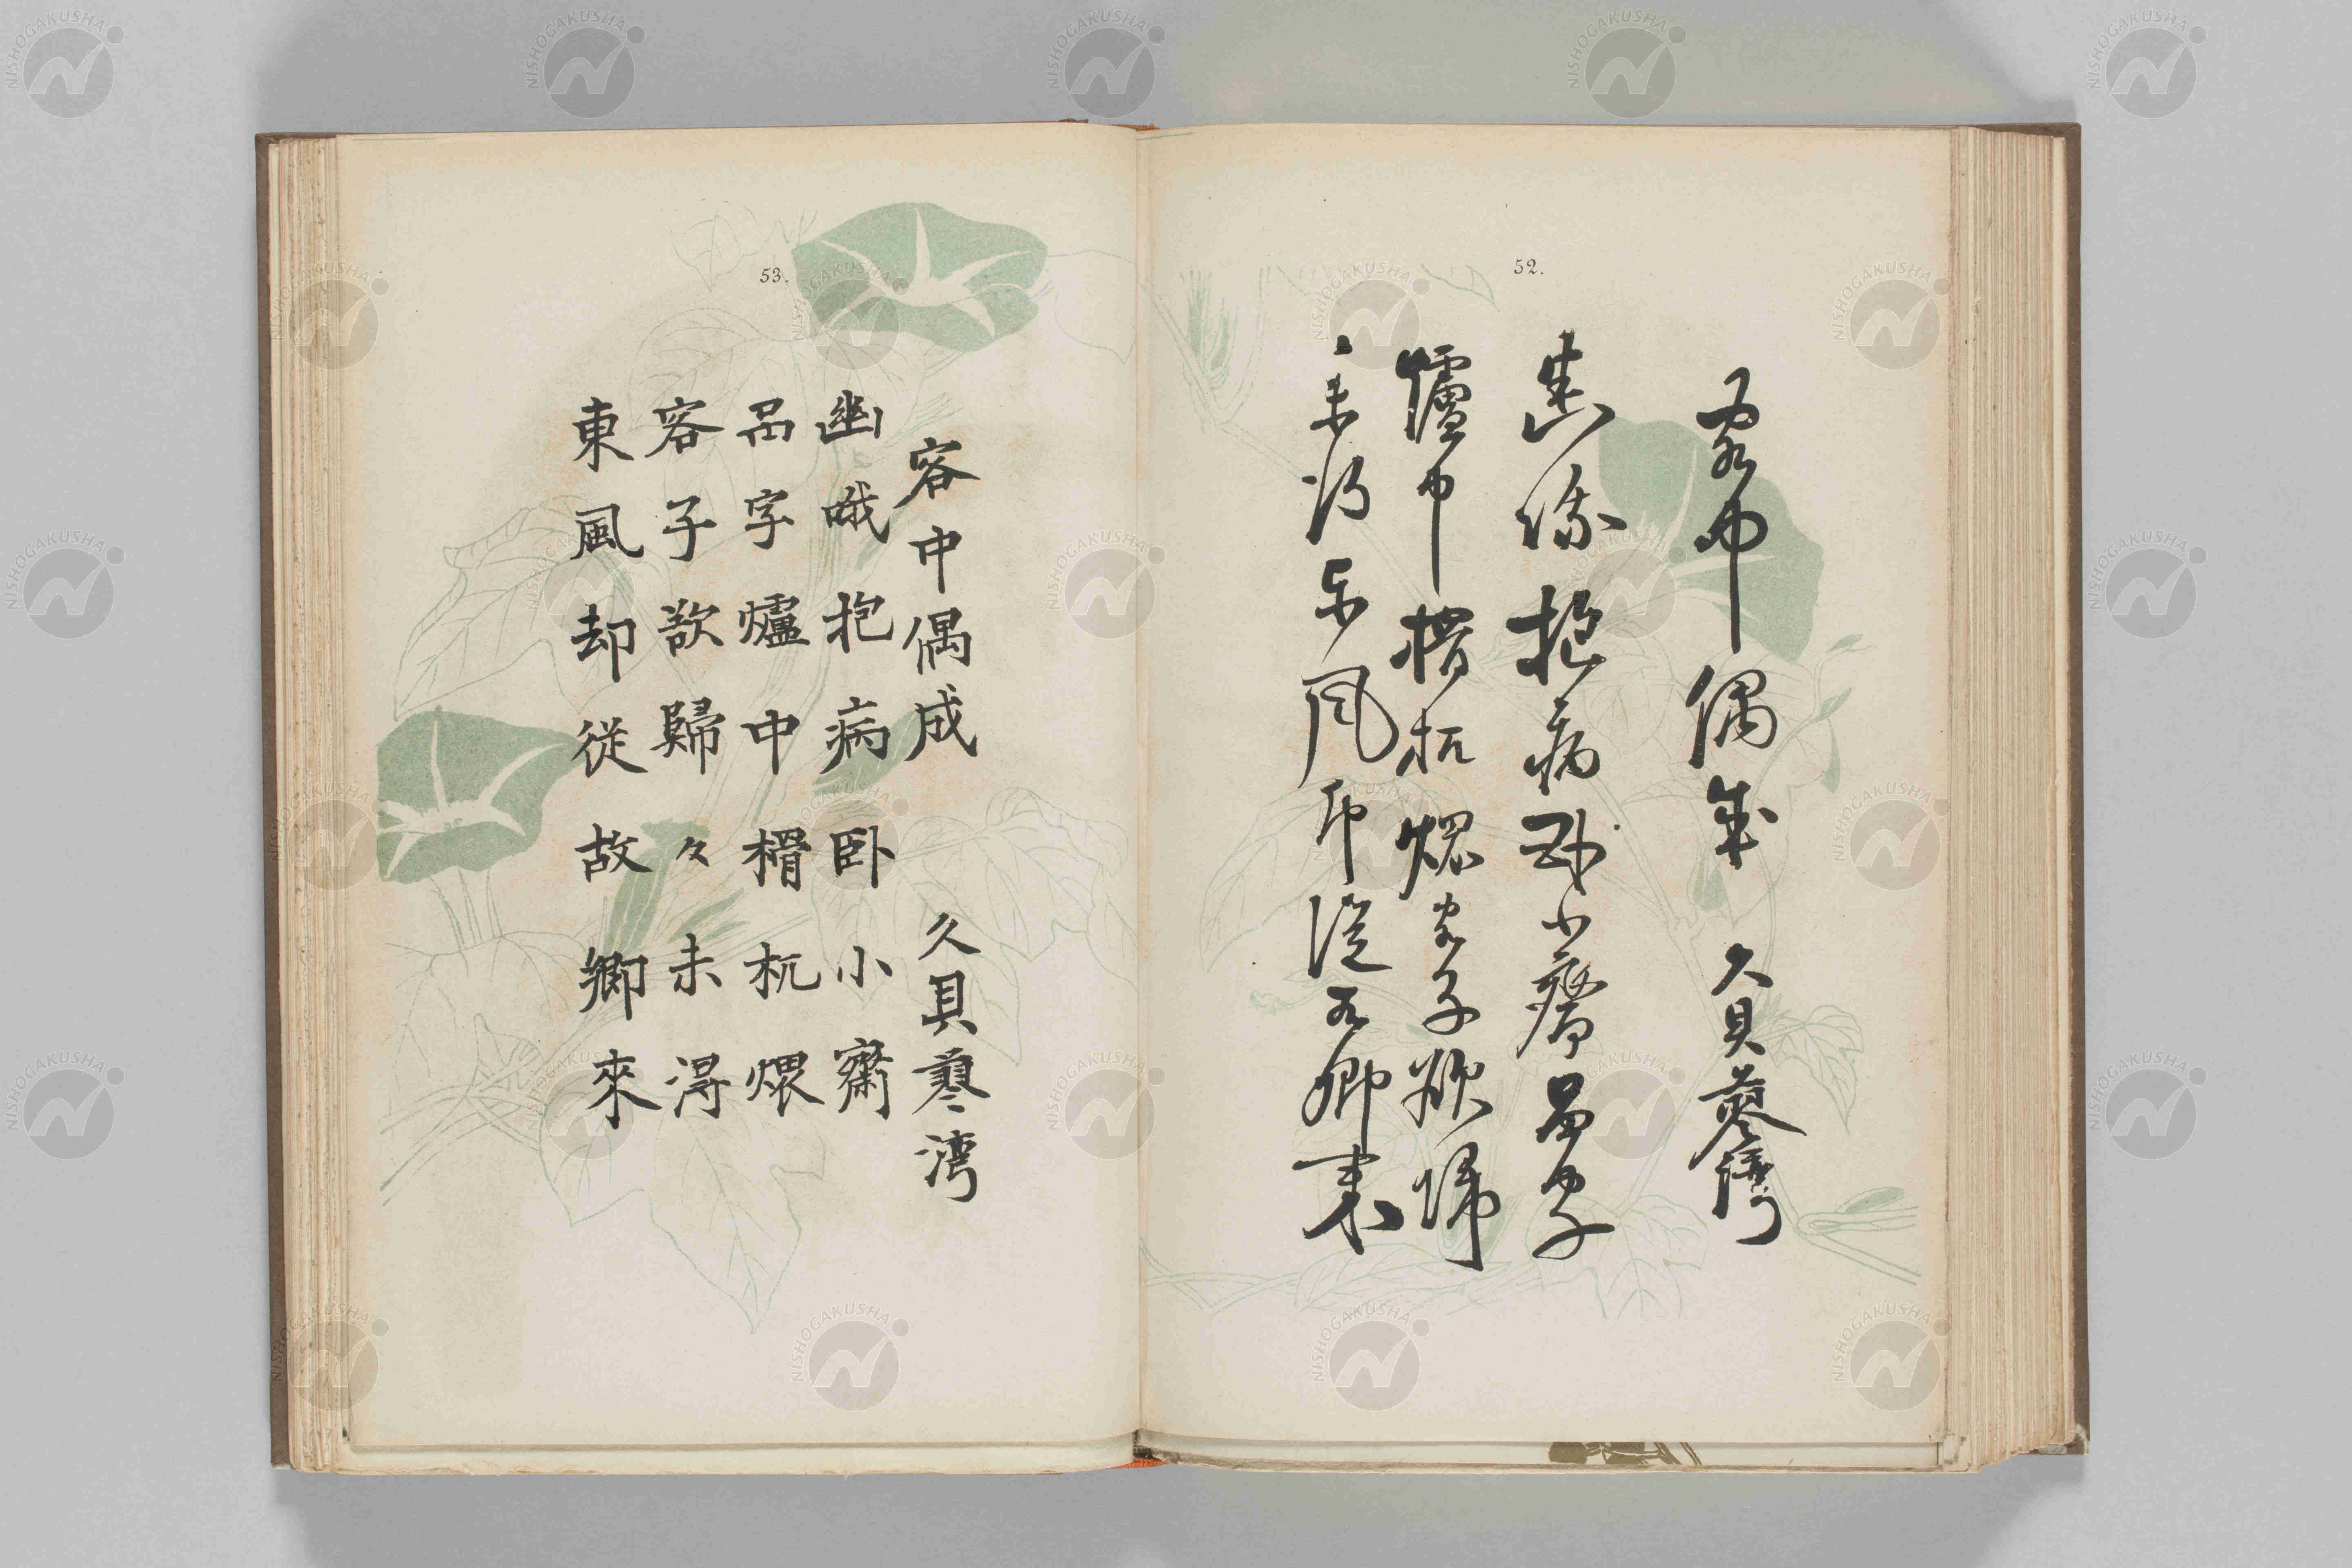 52.
客中偶成 久貝蓼湾
幽哦抱病卧小齋品字
爐中榾杌煨客子欲歸
々未得東風却從故鄉來
53.
客中偶成 久貝蓼湾
幽哦抱病卧小齋
品字爐中榾杌煨
客子欲歸々未得
東風却從故鄉來
NISHOGAKUSHA